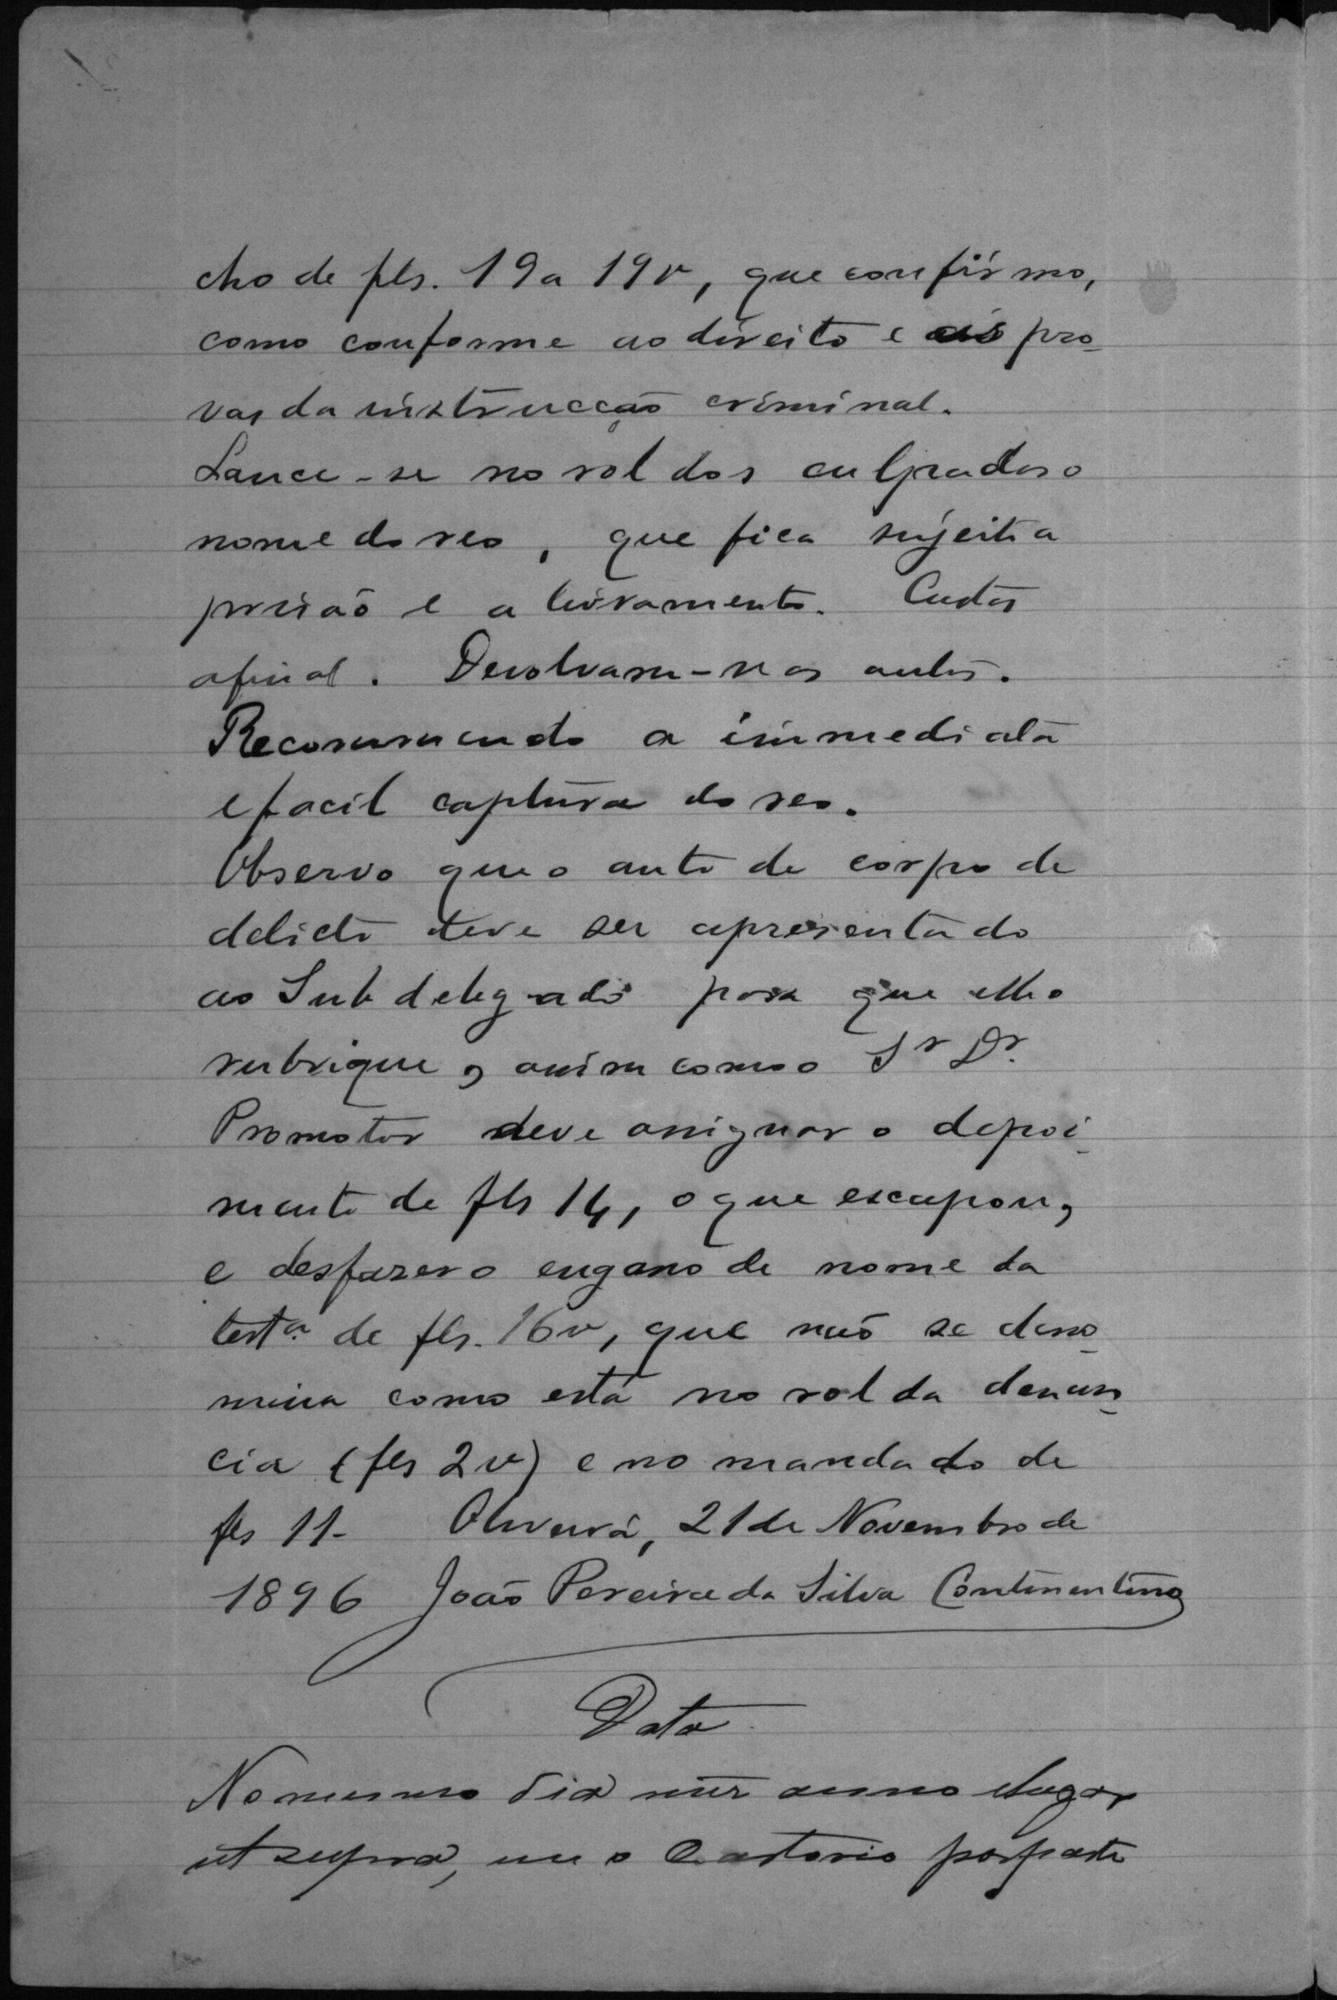 cho de fls. 19 a 19v, que confirmo,
como conforme ao direito e ás pro-
vas da instrucção criminal.
Lance-se no rol dos culpados o
nome do reo, que fica sujeito a
prisão e a livramento. Custas
afinal. Devolvam-se os autos.
Recommendo a immediata
e facil captura do reo.
Observo que o auto de corpo de
delicto deve ser apresentado
ao Subdelegado para que elle o
rubrique, assim como o Sr Dr.
Promotor deve assignar o depoi-
mento de fls 14, o que escapou,
e desfazer o engano de nome da
testa de fls. 16v, que não se deno-
mina como está no rol da denun-
cia (fls 2v) e no mandado de
fls 11- Oliveira, 21 de Novembro de
1896 João Pereira da Silva Continentino
Data
No mesmo dia mez anno e lugar
ut supra, em o Cartorio por parte